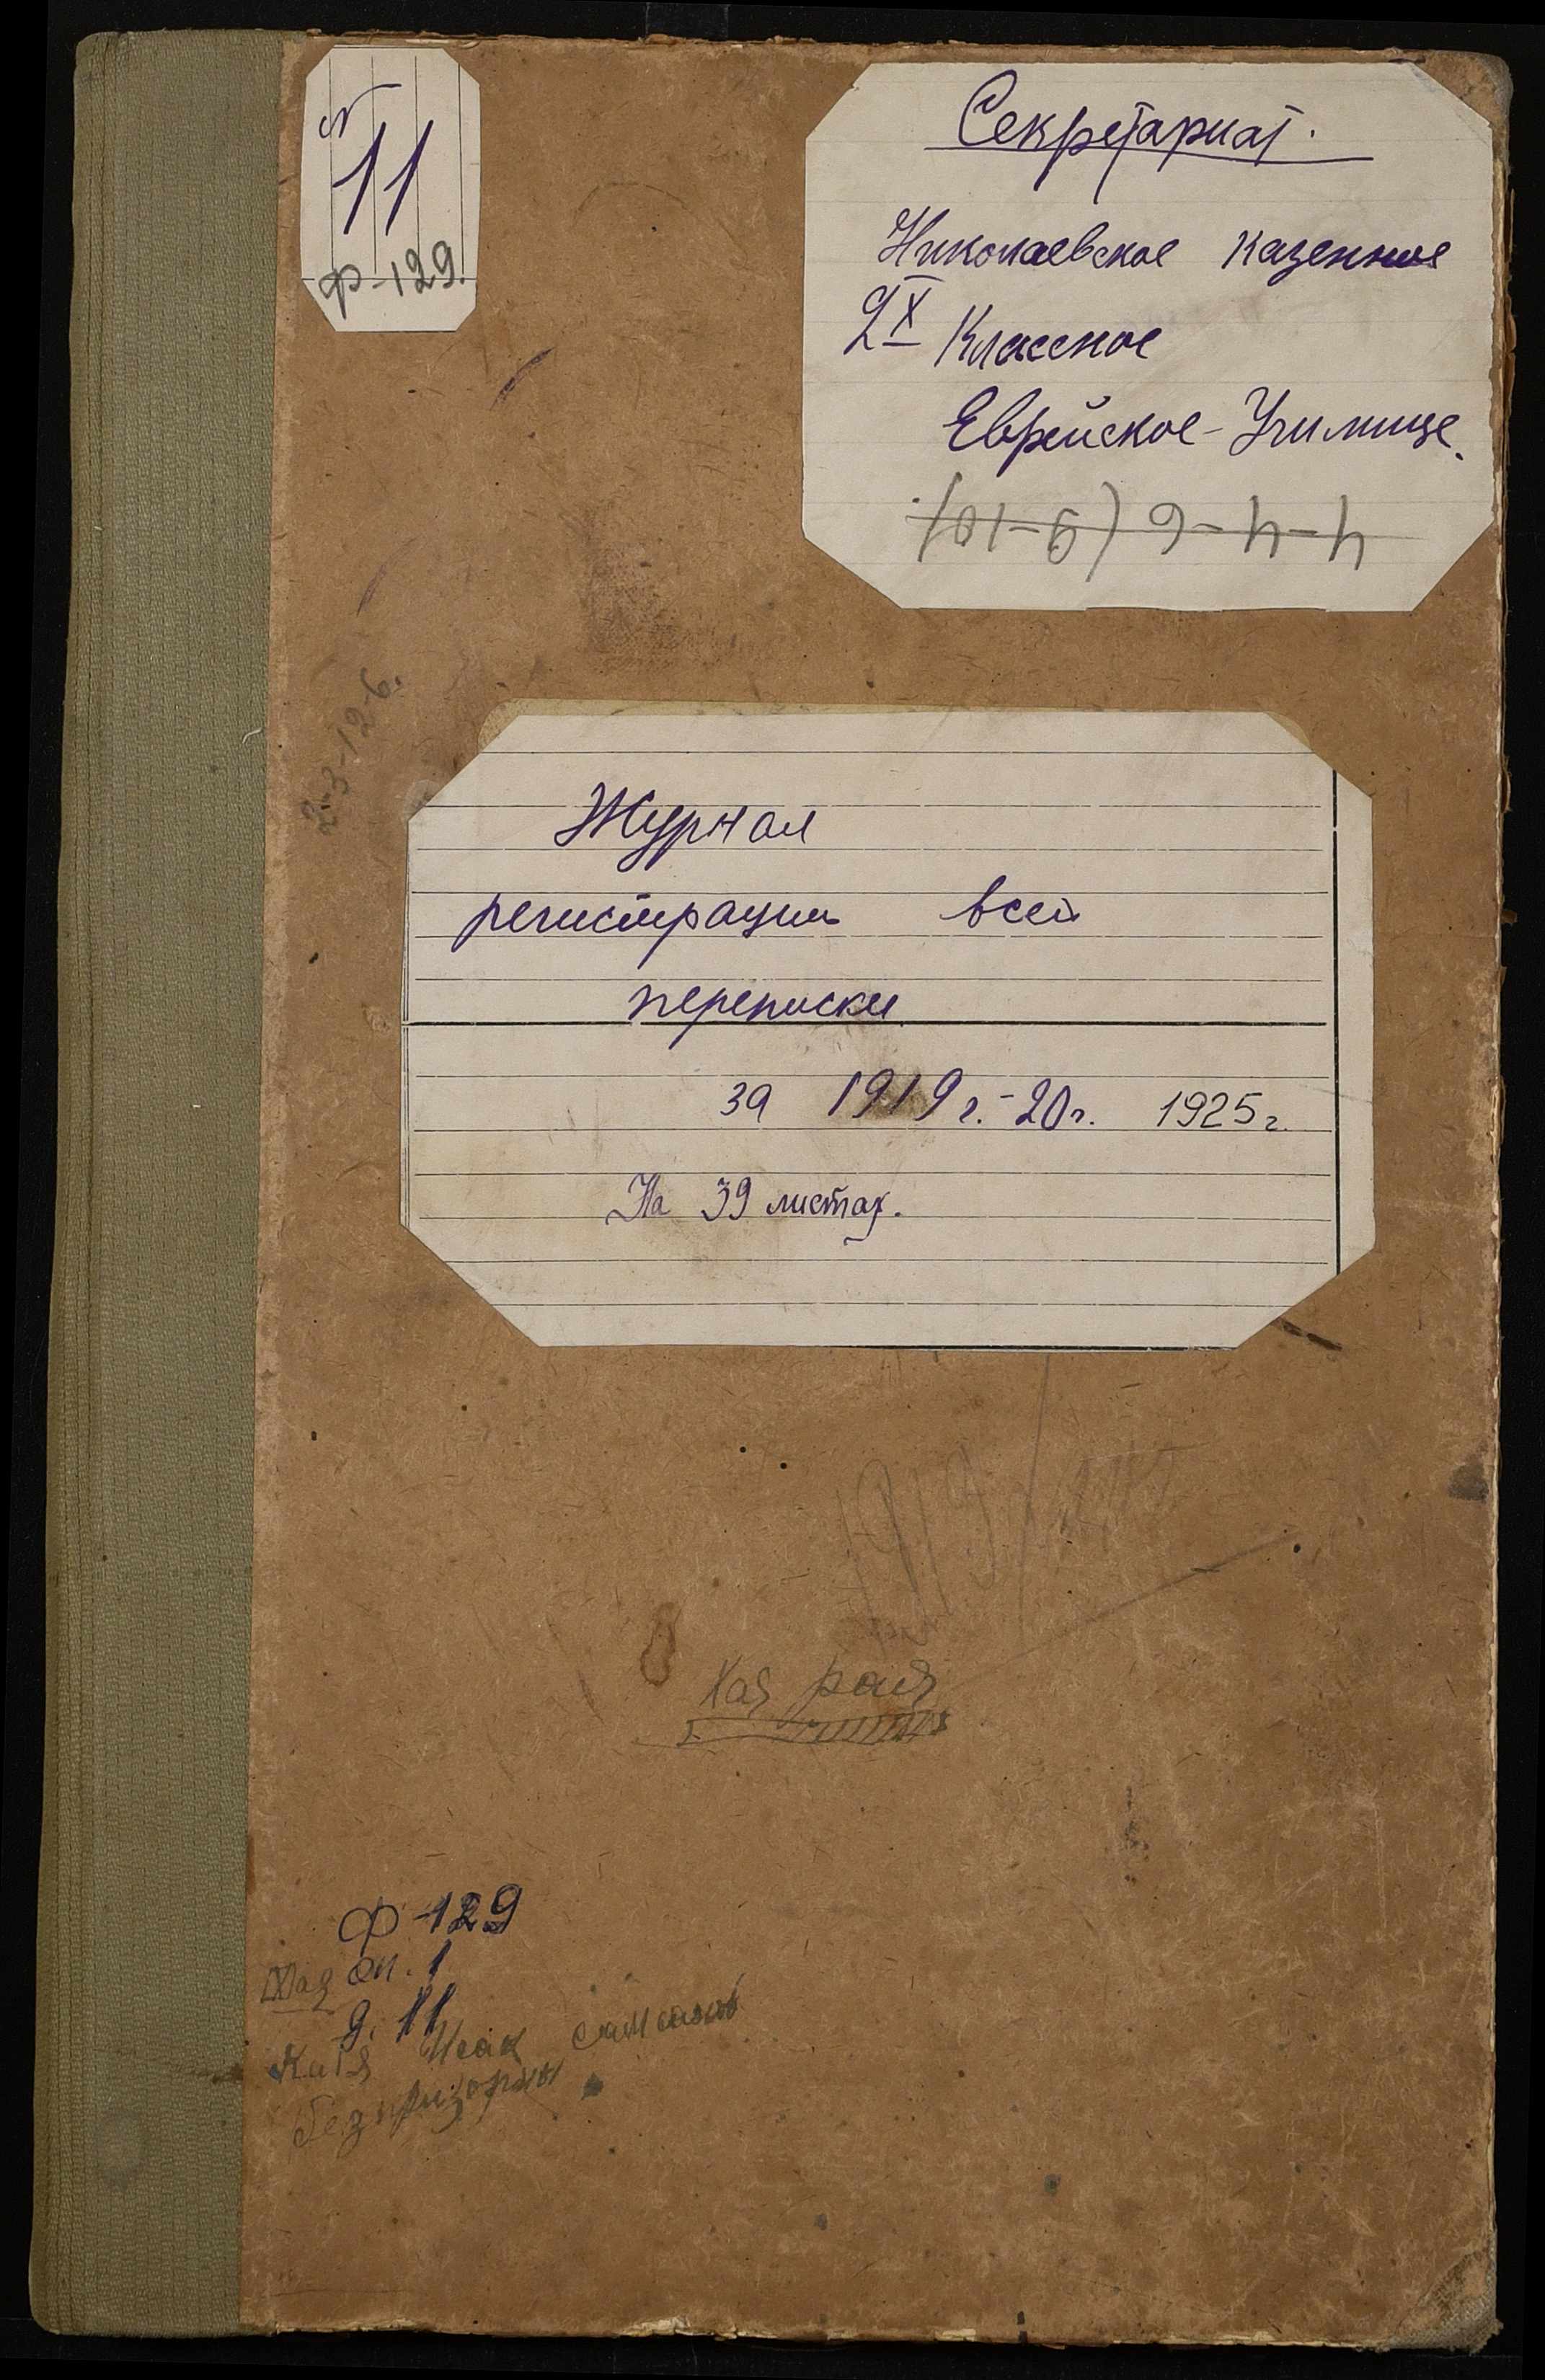 №
11
Ф-129.
Секретариат.
Николаевское казенное
2х Классное
Еврейское-Училище.
4-4-6 (9-10).
Журнал
регистрации всей
переписки
за 1919г.-20г. 1925г.
На 39 листах.
Хая рая
Ф-129
оп. 1
д. 11
Катя Исак
безпризорный